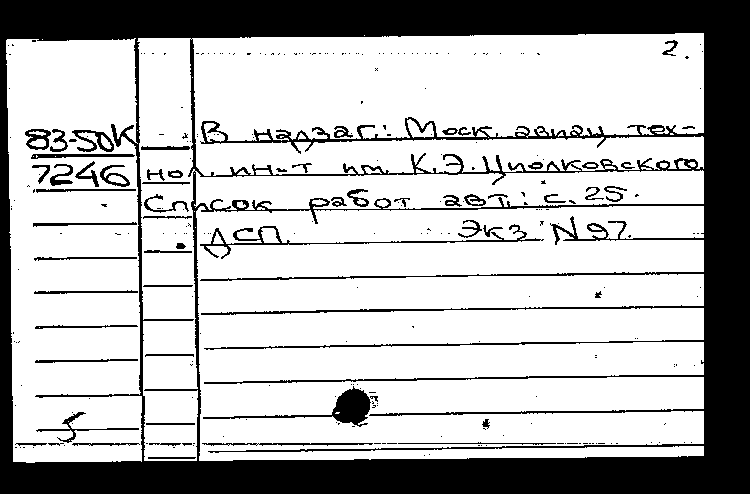 2.
83-50К В надзаг.: Моск. авиац. тех-
7246 нол. ин-т им. К.Э.Циолковского.
Список работ авт.: с. 25.
ДСП. Экз. N 97.
5